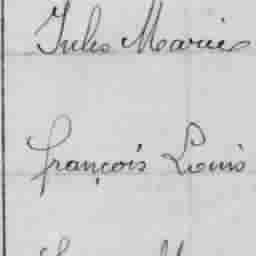 Jules Marie
François Louis